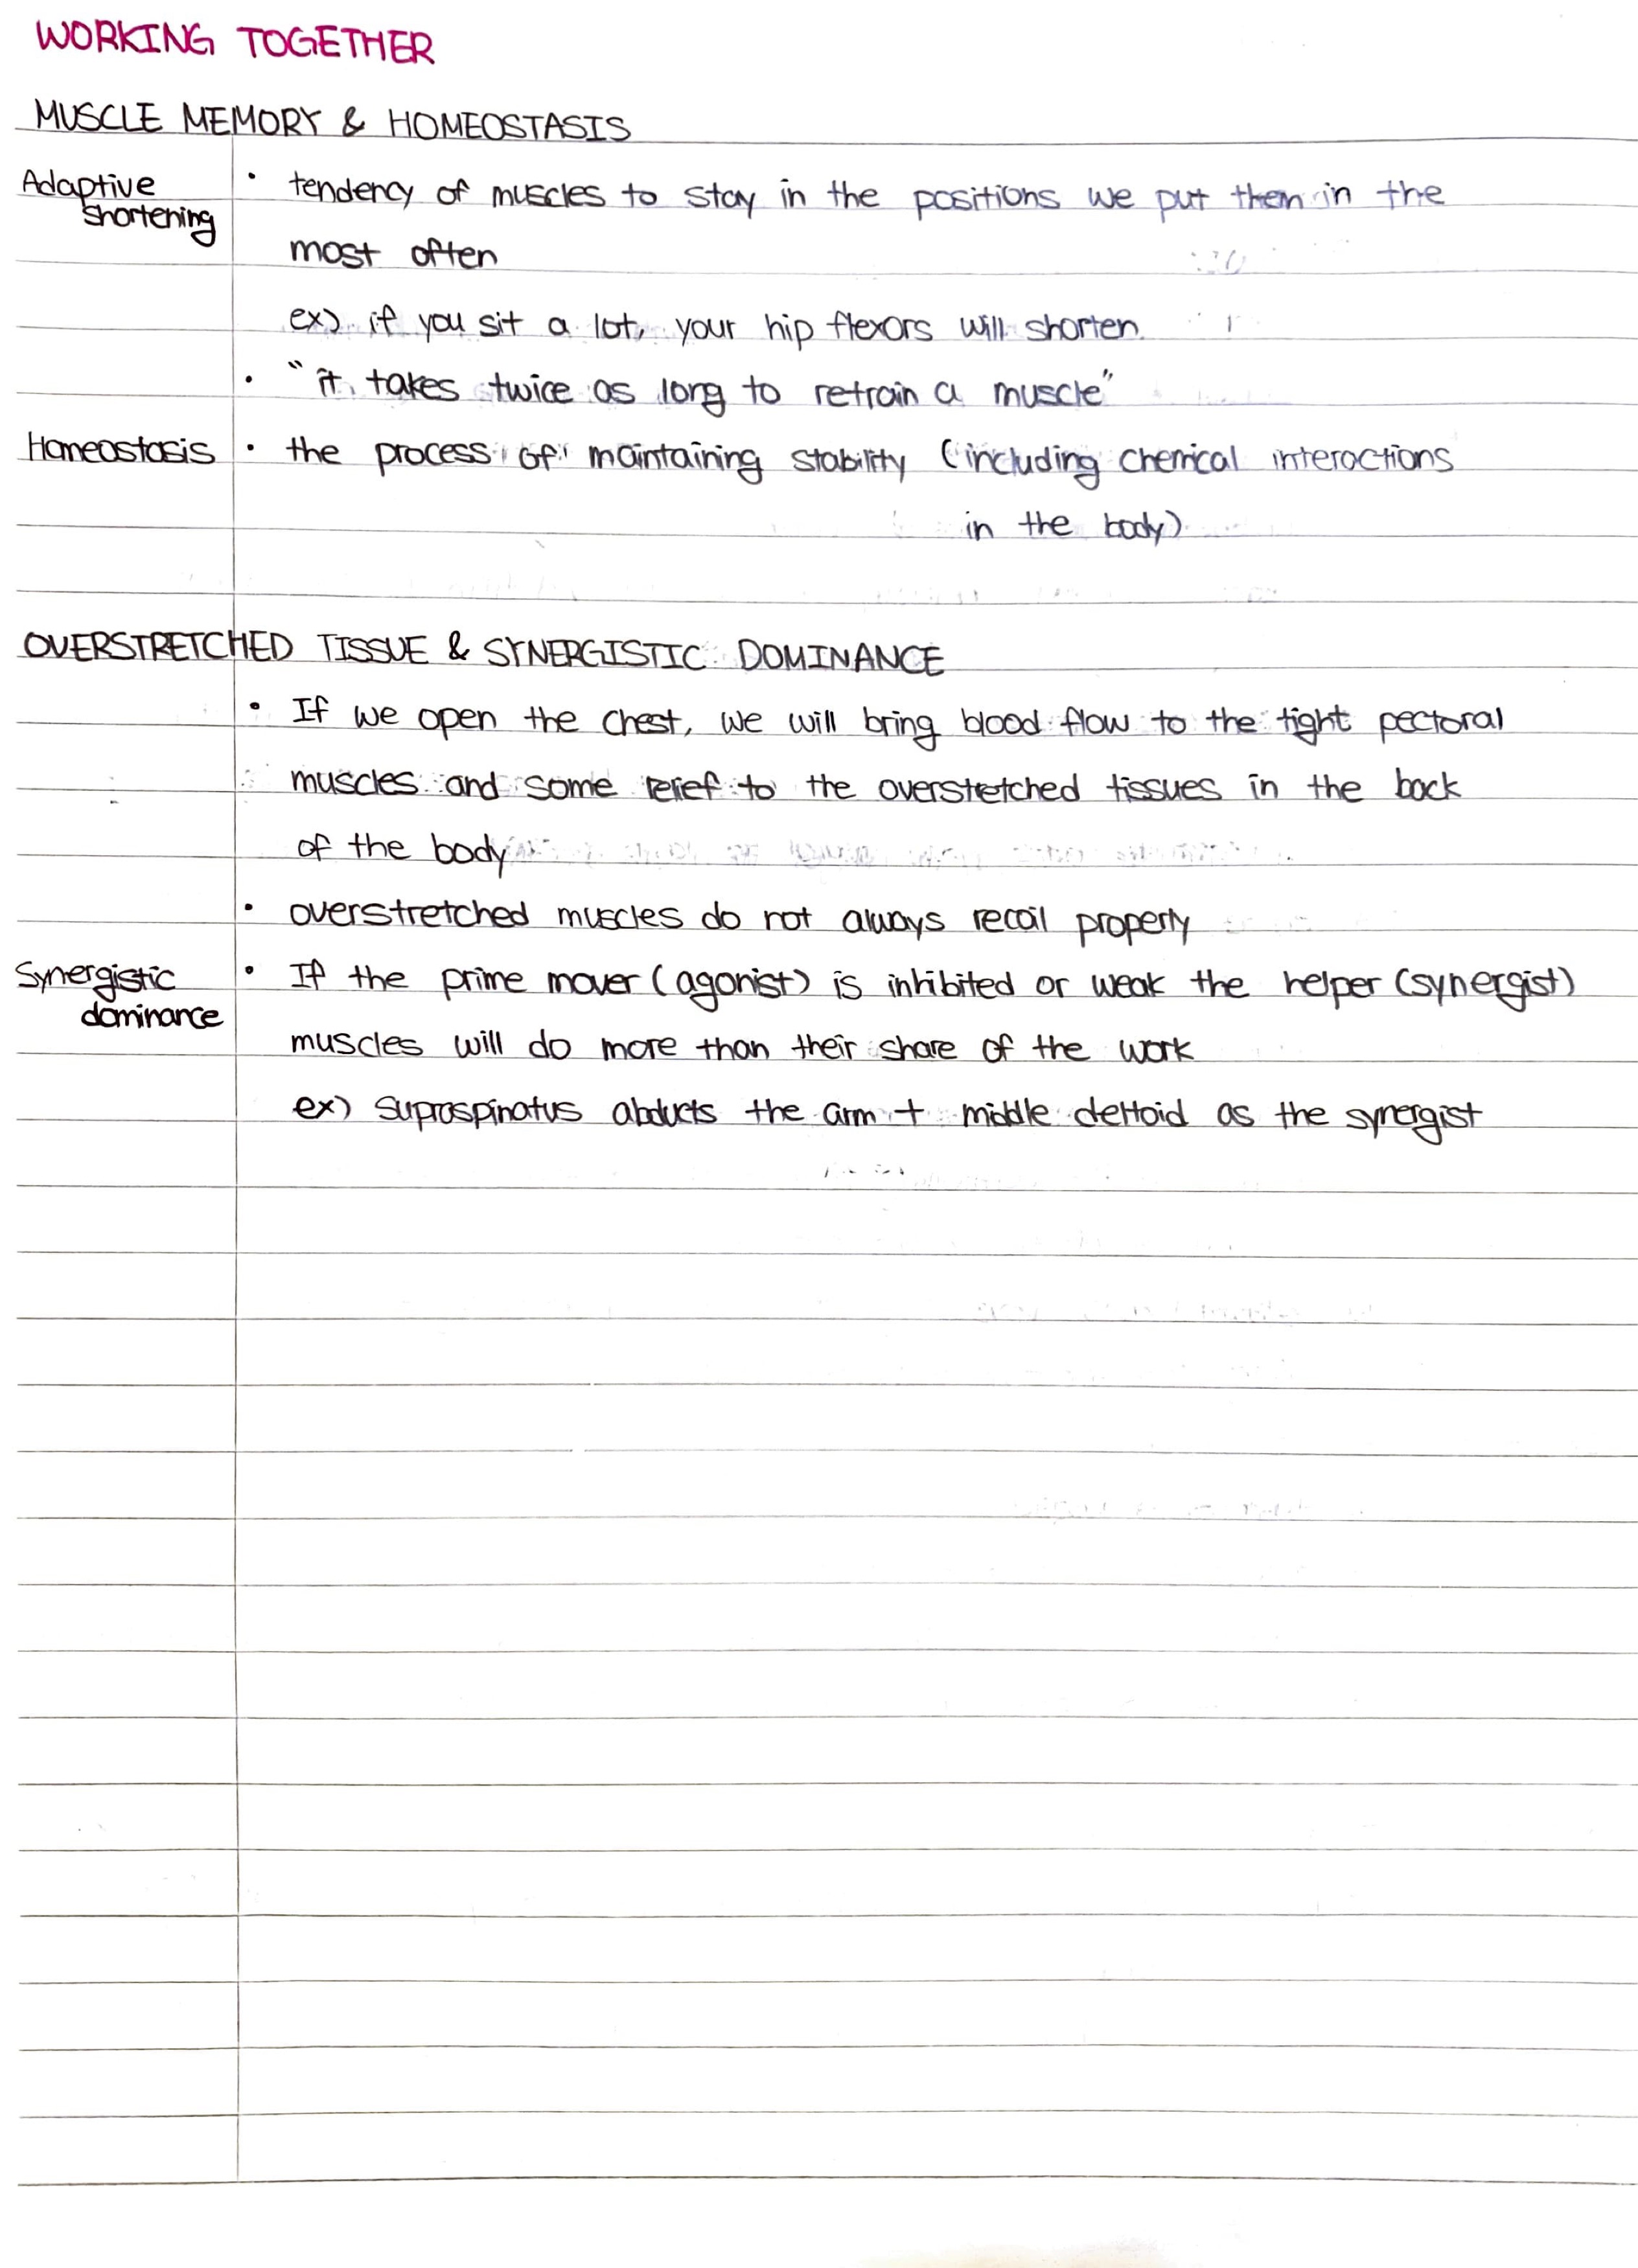 WORKING TOGETHER
MUSCLE MEMORY & HOMEOSTASIS
Adaptive shortening
• tendency of muscles to stay in the positions we put them in the
most often
ex) if you sit a lot, your hip flexors will shorten.
• "it takes twice as long to retrain a muscle"
Homeostasis • the process of maintaining stability (including chemical interactions
in the body)
OVERSTRETCHED TISSUE & SYNERGISTIC DOMINANCE
• If we open the chest, we will bring blood flow to the tight pectoral
muscles and some relief to the overstretched tissues in the back
of the body
• overstretched muscles do not always recoil properly
Synergistic dominance
• If the prime mover (agonist) is inhibited or weak the helper (synergist)
muscles will do more than their share of the work
ex) supraspinatus abducts the arm + middle deltoid as the synergist